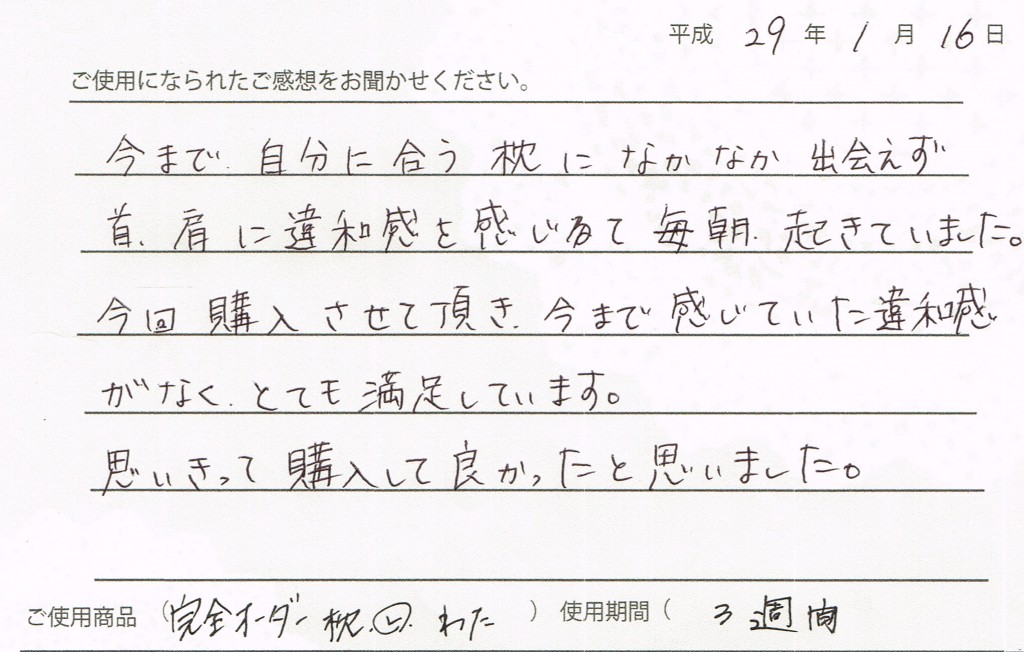 平成 29 年 1 月 16 日
ご使用になられたご感想をお聞かせください。
今まで、自分に合う枕になかなか出会えず
首、肩に違和感を感じるて毎朝、起きていました。
今回購入させて頂き、今まで感じていた違和感
がなく、とても満足しています。
思いきって購入して良かったと思いました。
ご使用商品 (完全オーダー枕 わた ) 使用期間 ( 3週間